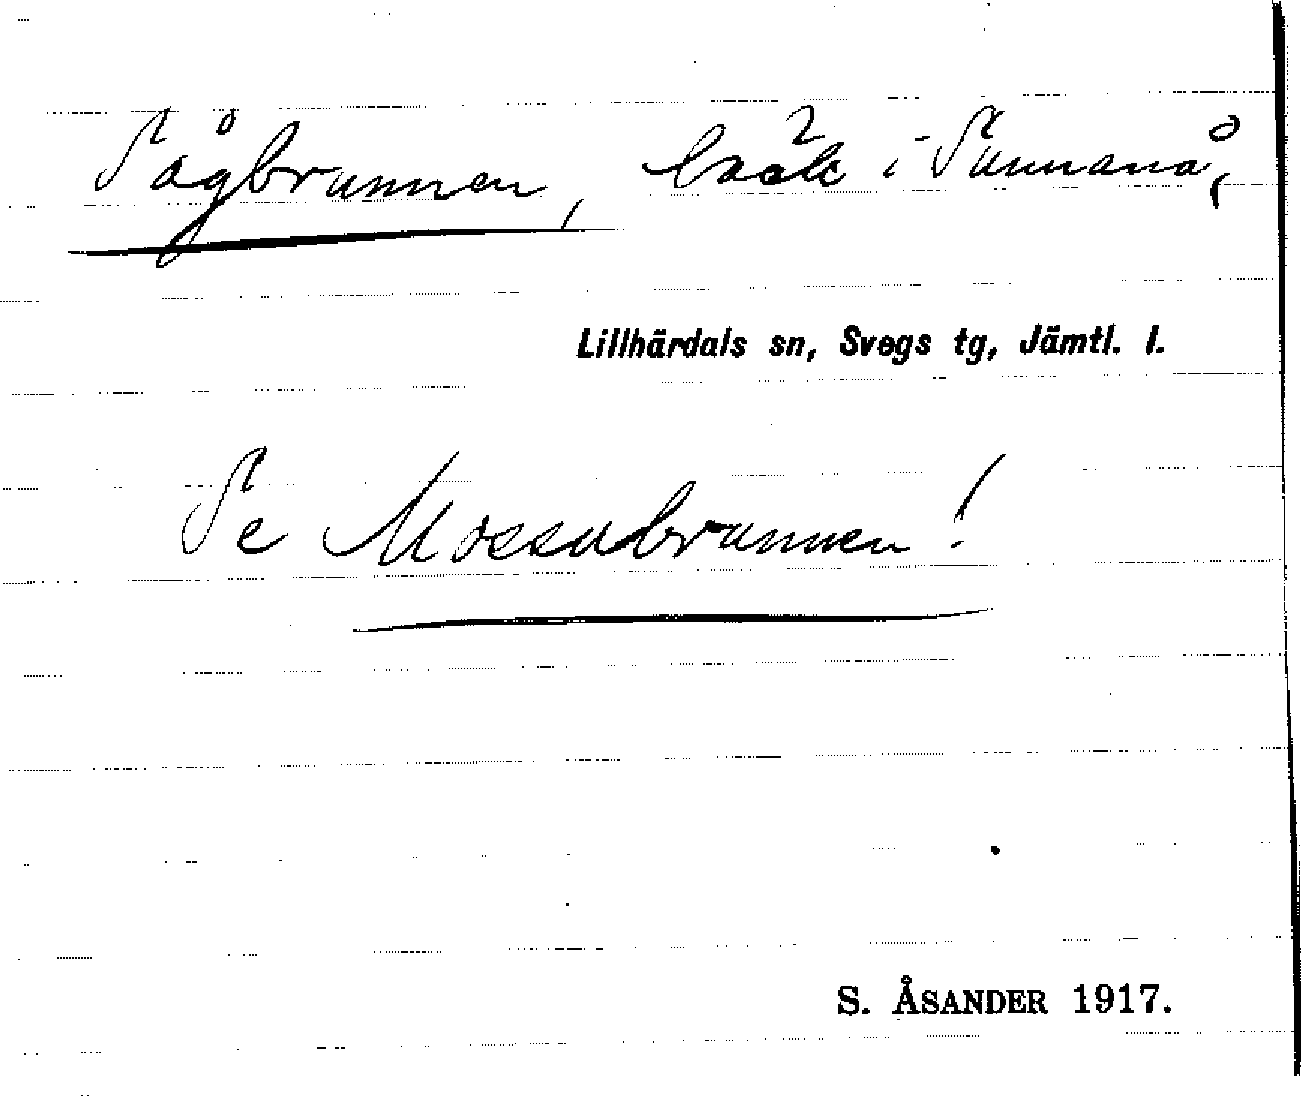 Sågbrunnen, bäck i Sunnanå,
Lillhärdals sn, Svegs tg, Jämtl. l.
Se Mossabrunnen!
S. ÅSANDER 1917.